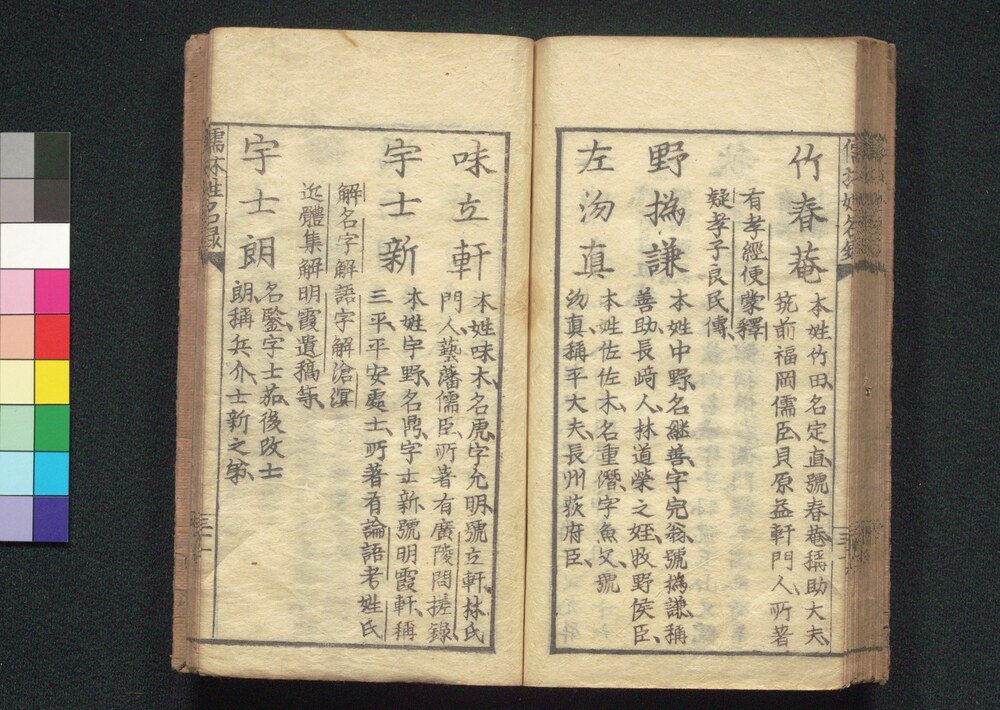 竹春菴
本姓竹田名定直號春菴稱助大夫
筑前福岡儒臣貝原益軒門人所著
有孝經便蒙釋
疑孝子良民傳
野撝謙
本姓中野名継善字完翁號撝謙稱
善助長﨑人林道榮之姪牧野侯臣
左沕真
本姓佐佐木名重潛字魚父號
沕真稱平大夫長州荻府臣
味立軒
本姓味木名虎字允明號立軒林氏
門人藝藩儒臣所著有廣陵問槎録
宇士新
本姓宇野名鼎字士新號明霞軒稱
三平平安處士所著有論語考姓氏
解名字解語字解滄溟
近體集解明霞遺稿等
宇士朗
名鑒字士茹後改士
朗稱兵介士新之弟
儒林姓名録